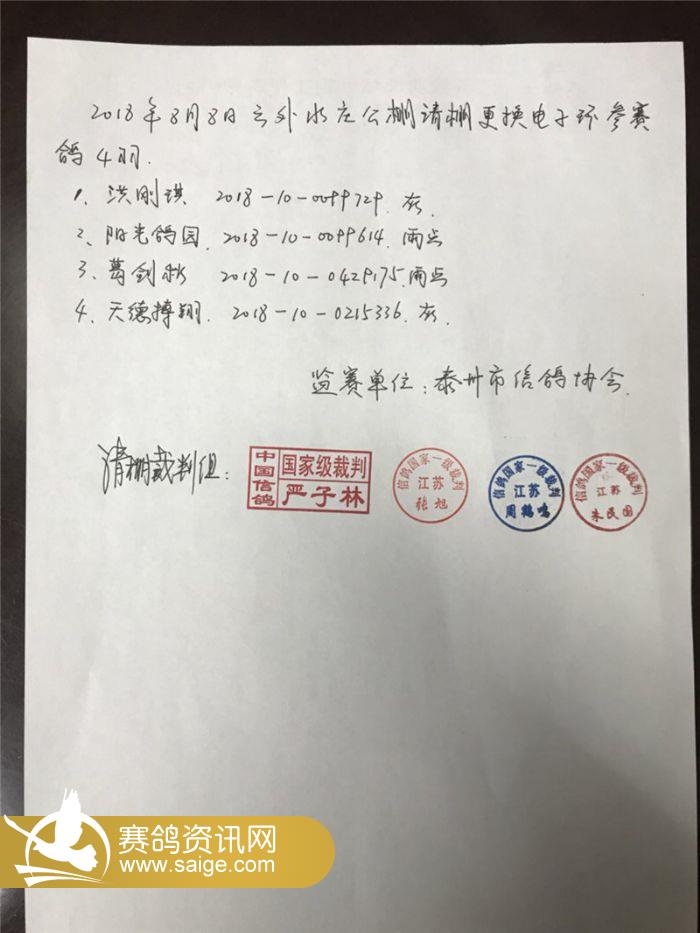 2018年8月8日云外水庄公棚清棚更换电子环参赛
鸽4羽.
1、洪刚琪 2018-10-0099729. 灰.
2、阳光鸽园. 2018-10-0099614. 雨点
3、葛剑秋 2018-10-0429175.雨点
4、天德搏翔. 2018-10-0215336. 灰.
监赛单位:泰州市信鸽协会.
清棚裁判组:
中国信鸽
国家级裁判
严子林
信鸽国家一级裁判
江苏
张旭
信鸽国家一级裁判
江苏
周鹤鸣
信鸽国家一级裁判
江苏
朱民国
赛鸽资讯网
www.saige.com